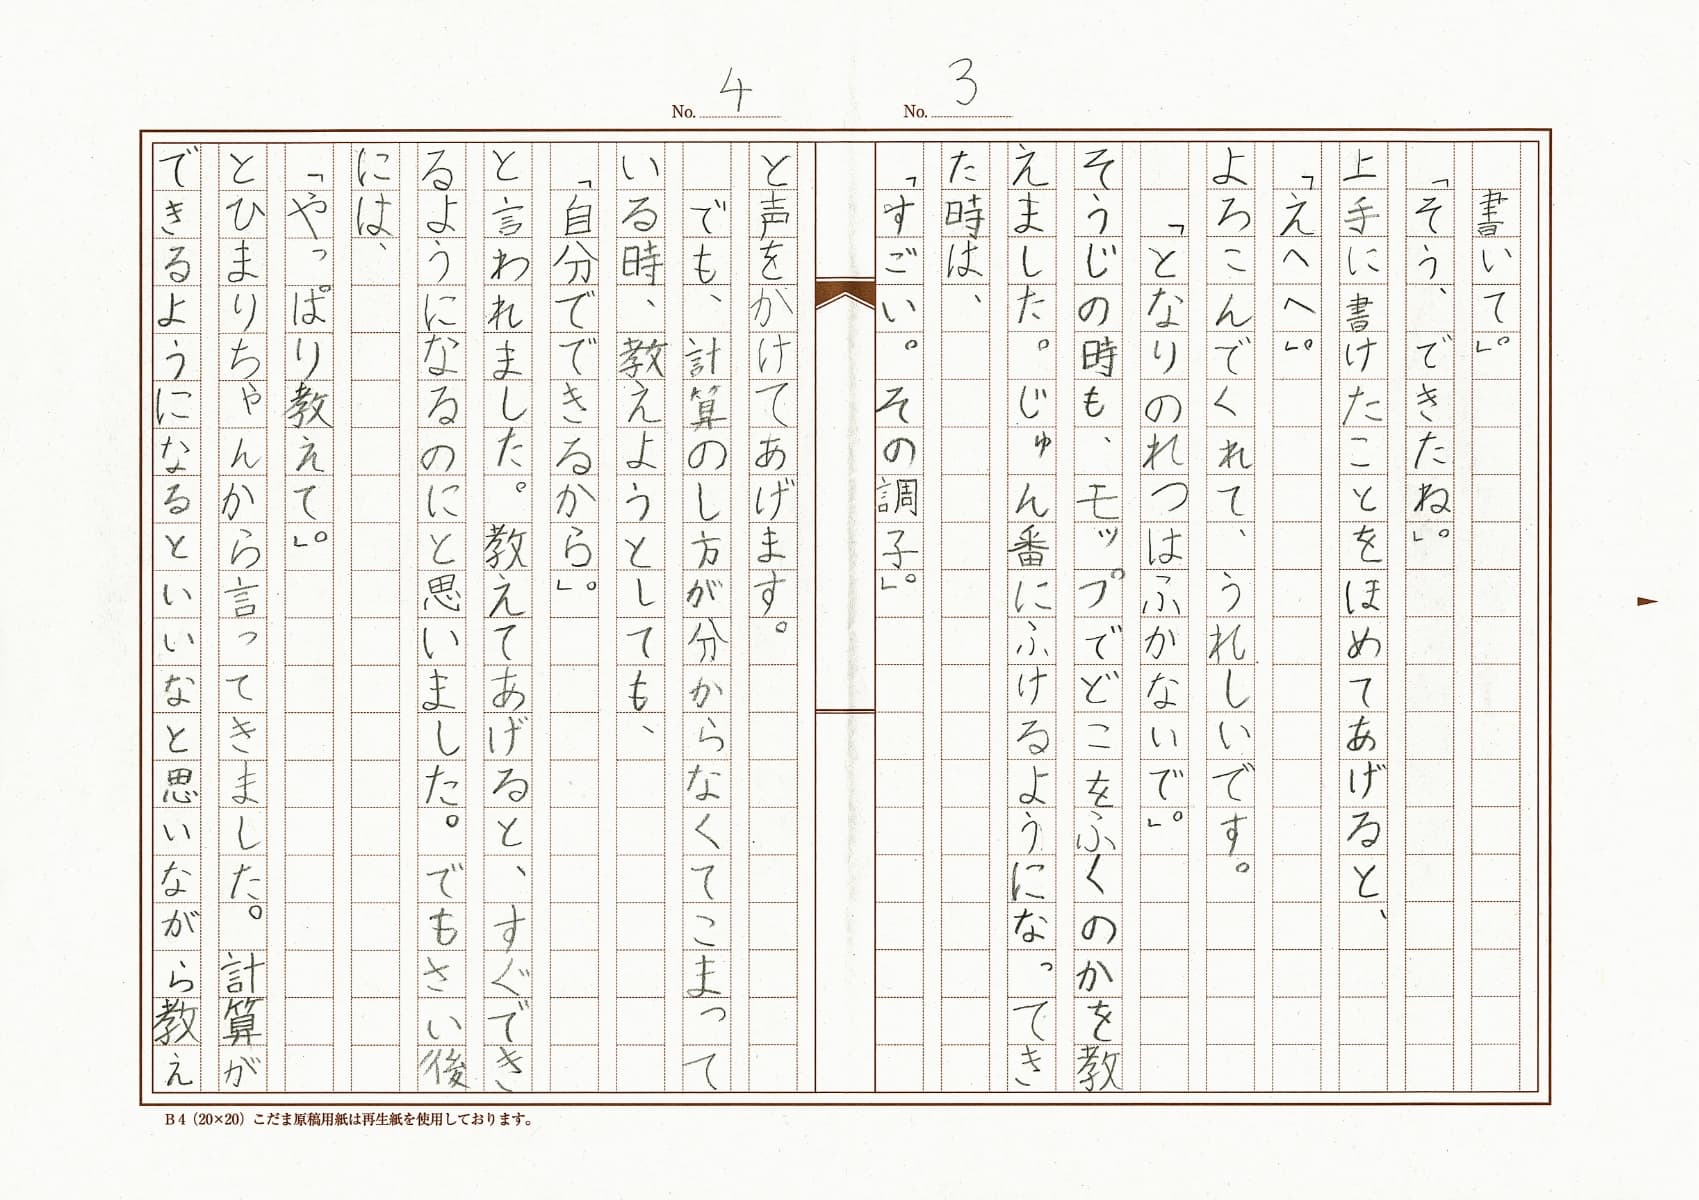 No. 3
書いて」。
「そう、できたね」。
上手に書けたことをほめてあげると、
「えへへ」。
よろこんでくれて、うれしいです。
「となりのれつはふかないで」。
そうじの時も、モップでどこをふくのかを教
えました。じゅん番にふけるようになってき
た時は、
「すごい。その調子」。
No. 4
と声をかけてあげます。
でも、計算のし方が分からなくてこまって
いる時、教えようとしても、
「自分でできるから」。
と言われました。教えてあげると、すぐでき
るようになるのにと思いました。でもさい後
には、
「やっぱり教えて」。
とひまりちゃんから言ってきました。計算が
できるようになるといいなと思いながら教え
B4(20×20)こだま原稿用紙は再生紙を使用しております。